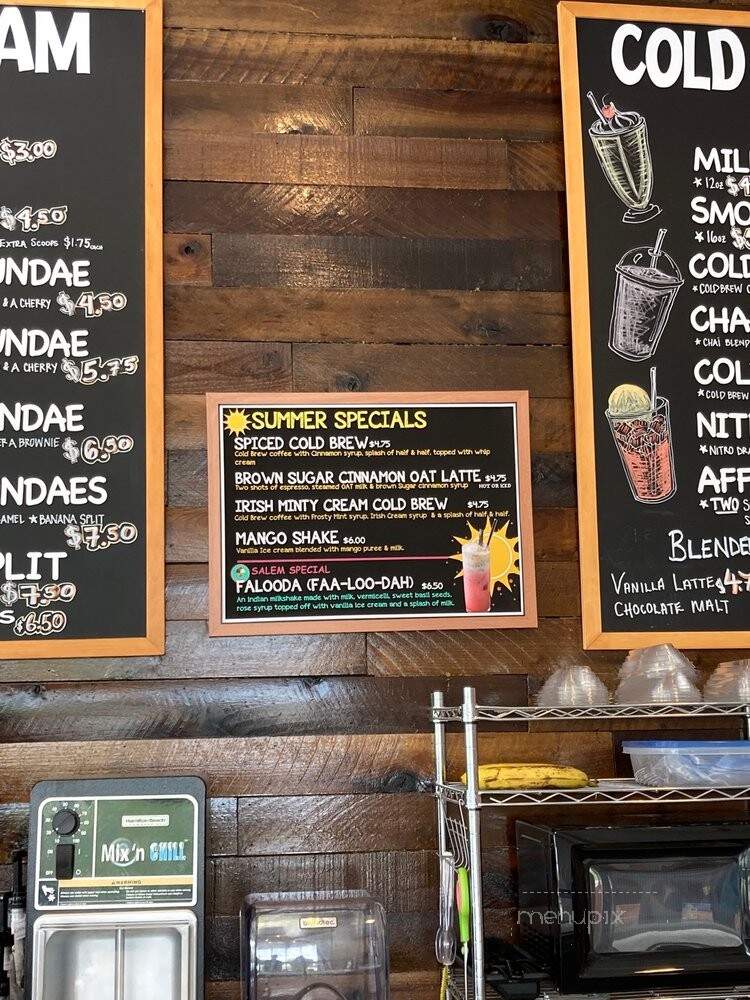 AM
$3.00
$4.50
EXTRA SCOOPS $1.75
UNDAE
& A CHERRY $4.50
UNDAE
& A CHERRY $5.75
NDAE
ER A BROWNIE $6.50
NDAES
AMEL ★ BANANA SPLIT
$7.50
PLIT
$7.50
S $6.50
SUMMER SPECIALS
SPICED COLD BREW $4.75
Cold Brew coffee with Cinnamon syrup, splash of half & half, topped with whip
cream
BROWN SUGAR CINNAMON OAT LATTE $4.75
Two shots of espresso, steamed OAT milk & brown Sugar cinnamon syrup HOT OR ICED
IRISH MINTY CREAM COLD BREW $4.75
Cold Brew coffee with Frosty Mint syrup, Irish Cream syrup & a splash of half & half.
MANGO SHAKE $6.00
Vanilla Ice cream blended with mango puree & milk.
SALEM SPECIAL
FALOODA (FAA-LOO-DAH) $6.50
An Indian milkshake made with milk, vermicelli, sweet basil seeds,
rose syrup topped off with vanilla ice cream and a splash of milk.
COLD
MIL
★ 12oz $4
SMO
★ 16oz
COLD
★ COLD BREW
CHA
★ CHAI BLEND
COL
★ COLD BREW
NIT
★ NITRO DR
AFF
★ TWO S
BLENDE
VANILLA LATTE $4.7
CHOCOLATE MALT
Hamilton Beach
Mix'n CHILL
WARNING
OFF
menupix